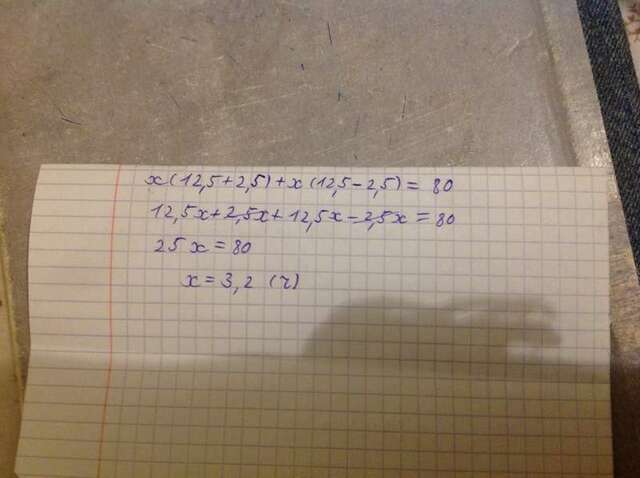 x(12,5+2,5)+x(12,5-2,5)= 80
12,5x+2,5x+12,5x-2,5x = 80
25x=80
x=3,2 (ч)